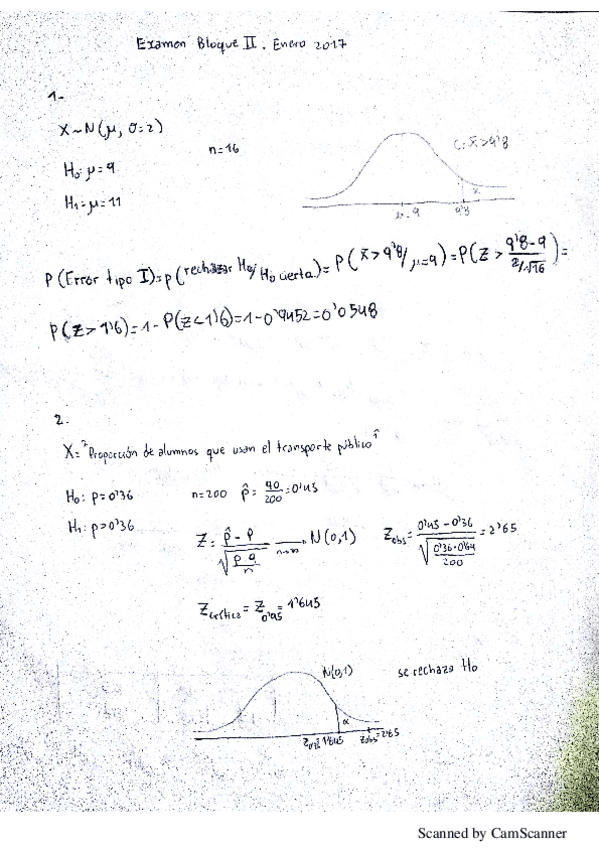 Examen Bloque II. Enero 2017
1.-
X~N(μ, σ=2)
n=16
H₀: μ=9
H₁: μ=11
C: x̄>9'8
α
9
9'8
P(Error tipo I)=p(rechazar H₀/H₀ cierta)=P(x̄>9'8/μ=9)=P(Z>(9'8-9)/(2/√16))=
P(Z>1'6)=1-P(Z<1'6)=1-0'9452=0'0548
2.
X="Proporción de alumnos que usan el transporte público"
H₀: p=0'36
n=200 p̂=90/200=0'45
H₁: p>0'36
Z=(p̂-p)/√(p q/n) → n→∞ N(0,1)
Zobs=(0'45-0'36)/√(0'36·0'64/200)=2'65
Zcrítica=Z0'95=1'645
N(0,1)
se rechaza H₀
α
Z0'95=1'645
Zobs=2'65
Scanned by CamScanner